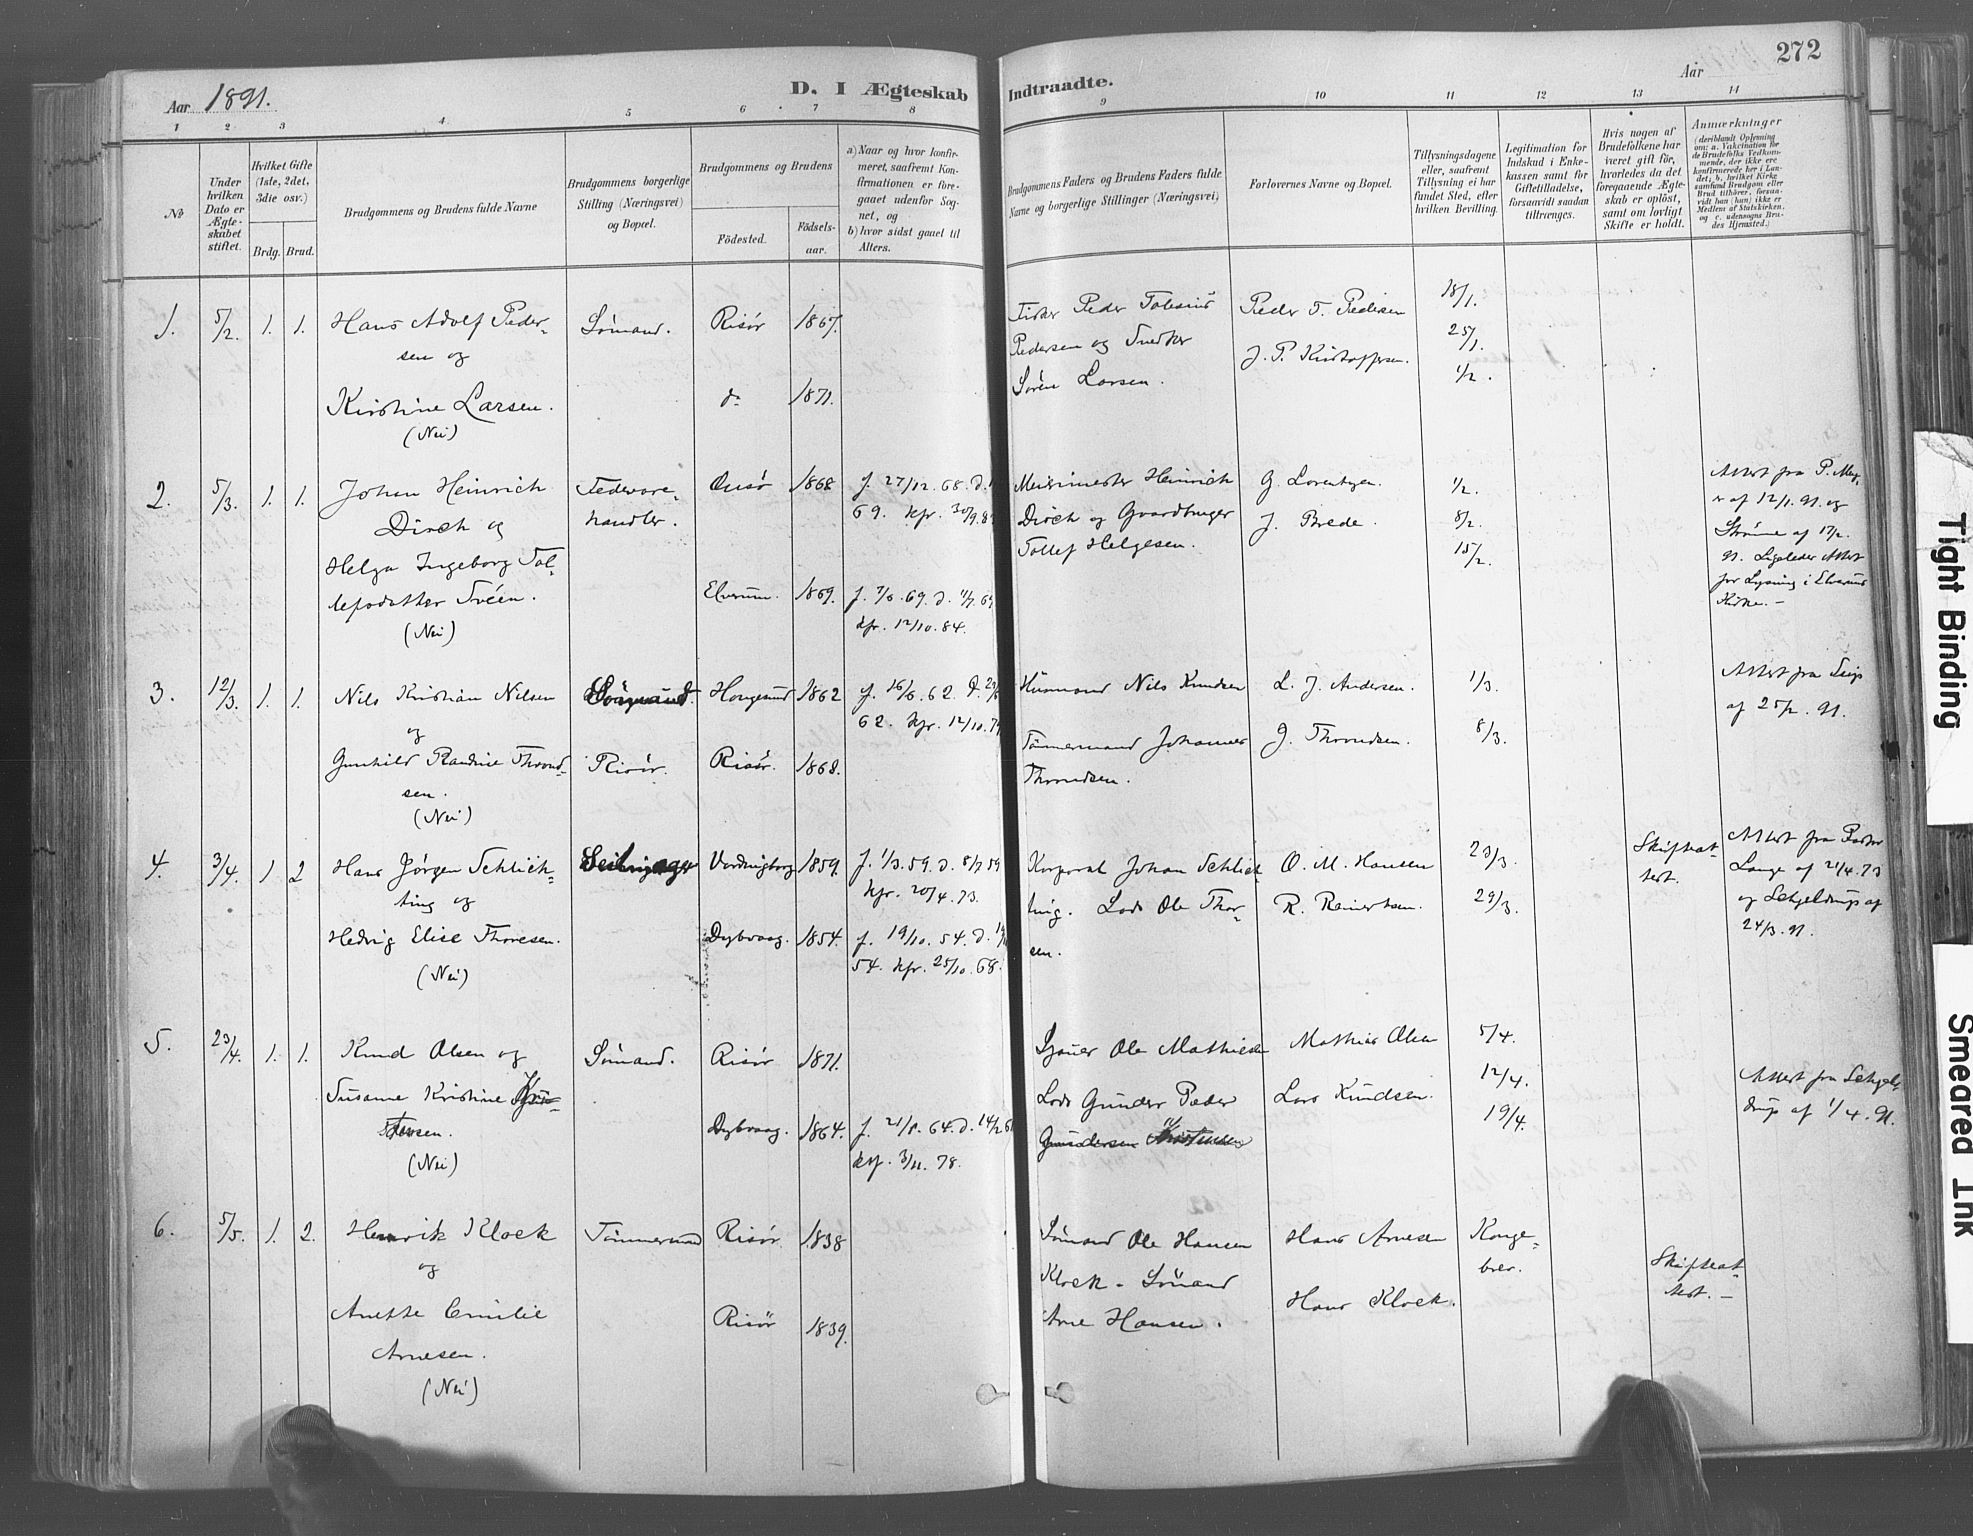 272
Aar 1891.
D. I Ægteskab Indtraadte.
Aar
1 2 3 4 5 6 7 8 9 10 11 12 13 14
No
Under hvilken Dato er Ægte-skabet stiftet.
Hvilket Gifte (1ste, 2det, 3die osv.)
Brdg. Brud.
Brudgommens og Brudens fulde Navne
Brudgommens borgerlige Stilling (Næringsvei) og Bopæl.
Brudgommens og Brudens
Födested.
Födsels-aar.
a) Naar og hvor konfir-meret, saafremt Kon-firmationen er fore-gaaet udenfor Sog-net, og
b) hvor sidst gaaet til Alters.
Brudgommens Faders og Brudens Faders fulde Navne og borgerlige Stillinger (Næringsvei)
Forlovernes Navne og Bopæl.
Tillysningsdagene eller, saafremt Tillysning ei har fundet Sted, efter hvilken Bevilling.
Legitimation for Indskud i Enke-kassen samt for Giftetilladelse, forsaavidt saadan tiltrænges.
Hvis nogen af Brudefolkene har været gift för, hvorledes da det foregaaende Ægte-skab er oplöst, samt om lovligt Skifte er holdt.
Anmærkninger
1. 5/2. 1. 1. Hans Adolf Peder-
sen og
Kirstine Larsen.
(Nei)
Sömand.
Risör 1867.
do 1871.
Fisker Peder Tobias
Pedersen og Snedker
Sören Larsen.
Peder T. Pedersen
J. P. Kristoffersen.
18/1.
25/1.
1/2.
2. 5/3. 1. 1. Johan Heinrich
Dirch og
Helga Ingeborg Tol-
lefsdatter Svéen.
(Nei)
Fedevare-
handler.
1868
f. 27/12. 68. d.
69. kfr. 30/9. 8
Elverum. 1869.
f. 7/6. 69. d. 69
kfr. 12/10. 84.
Meierimester Heinrich
Dirch og Gaardbruger
Tollef Helgesen.
G. Lorentzen.
J. Brede.
1/2.
8/2.
15/2.
Attest fra P.
af 12/1. 91. og
Strömme af 17/2.
91. Ligeledes Attest
for Lysning i Elverums
Kirke. –
3. 12/3. 1. 1. Nils Kristian Nilsen
og
Gunhild Randine Thrond-
sen.
(Nei)
Risör.
Haugesund 1862
f. 16/6. 62. d.
62. kfr. 12/10. 7
Risör. 1868.
Husmand Nils Knudsen
Tömmermand Johannes
Throndsen.
L. J. Andersen.
J. Throndsen.
1/3.
8/3.
Attest fra
af 25/2. 91.
4. 3/4. 1. 2 Hans Jörgen Schlich-
ting og
Hedvig Elise Thoresen.
(Nei)
Vordingborg 1859.
f. 1/3. 59. d. 8/7 59
kfr. 20/4. 73.
Dybvaag. 1854.
f. 19/10. 54. d.
54. kfr. 25/10. 68.
Korporal Johan Schlich-
ting. Lods Ole Thor-
sen.
O. M. Hansen
R. Reinertsen.
23/3.
29/3.
Skifteat-
test.
Attest fra Pastor
Lange af 21/4. 73
og Schjeldrups af
24/3. 91.
5. 23/4. 1. 1. Knud Olsen og
Susanne Kristine
(Nei)
Sömand.
Risör 1871.
Dybvaag. 1864.
f. 21/8. 64. d. 14/2 6
kfr. 3/11. 78.
Ole Mathiesen
Lods Gunder Peder
Gundersen
Mathias Olsen
Lars Knudsen.
5/4.
12/4.
19/4.
Attest fra Schjel-
drups af 1/4. 91.
6. 5/5. 1. 2. Henrik Klock
og
Anette Emilie
Arnesen.
(Nei)
Tömmermand
Risör. 1838
Risör 1839.
Sömand Ole Hansen
Klock – Sömand
Arne Hansen.
Hans Arnesen
Hans Klock.
Konge-
brev.
Skifteat-
test. –
Tight Binding
Smeared Ink